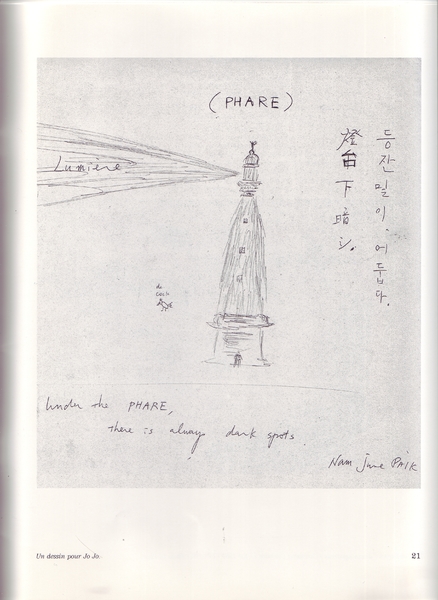 (PHARE)
등잔 밑이 어둡다.
燈台下暗シ.
Lumière
Under the PHARE,
there is always dark spots.
Nam June PAIK
Un dessin pour Jo Jo.
21